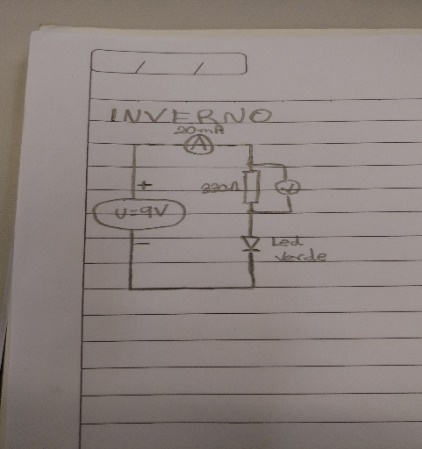 / /
INVERNO
20mA
A
+
U=9V
-
Led
Verde